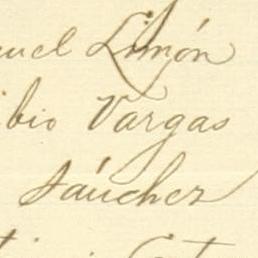 uel Limón
ibio Vargas
Sánchez